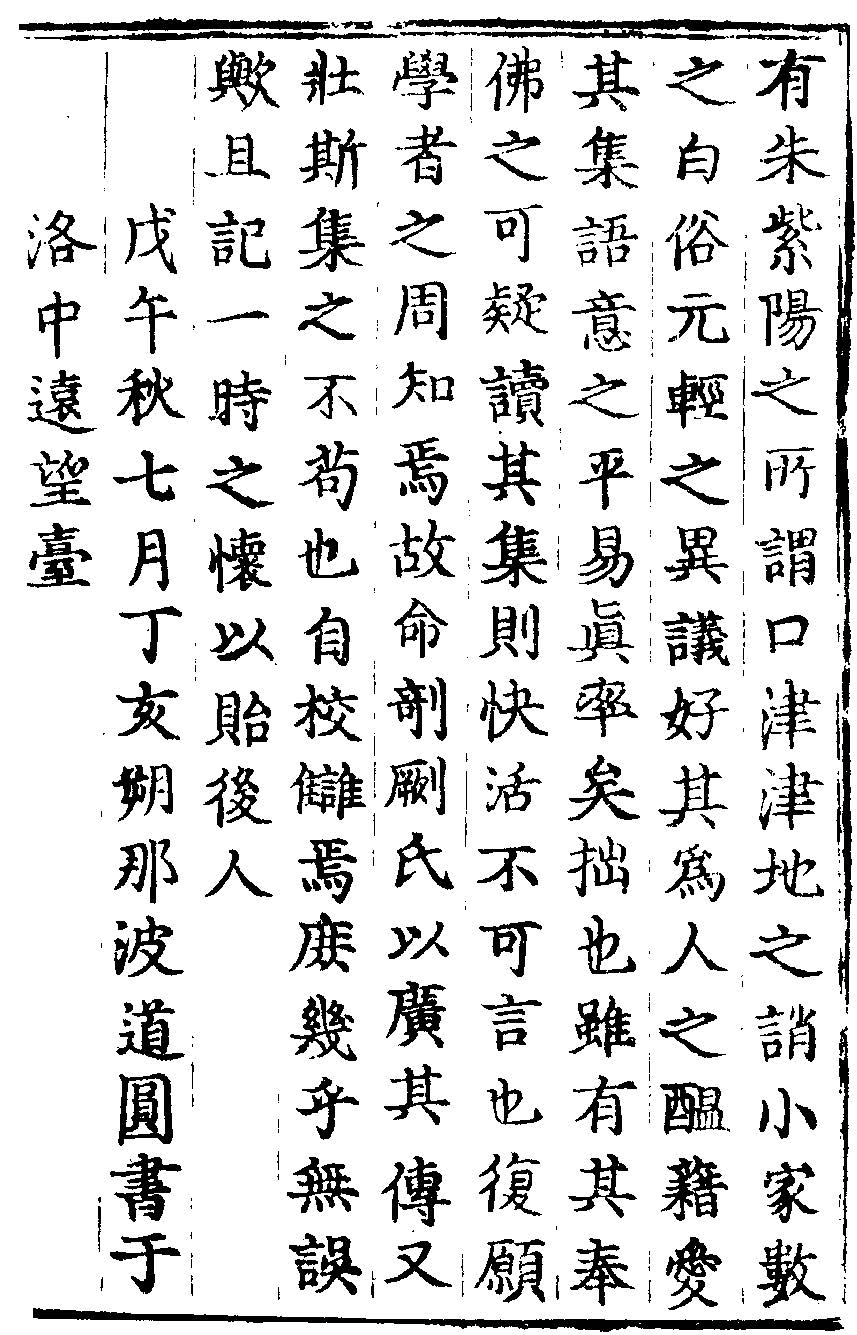 有朱紫陽之所謂口津津地之誚小家數
之白俗元輕之異議好其爲人之醖藉愛
其集語意之平易眞率矣拙也雖有其奉
佛之可疑讀其集則快活不可言也復願
學者之周知焉故命剞劂氏以廣其傳又
壯斯集之不苟也自校讎焉庶幾乎無誤
歟且記一時之懷以貽後人
戊午秋七月丁亥朔那波道圓書于
洛中遠望臺